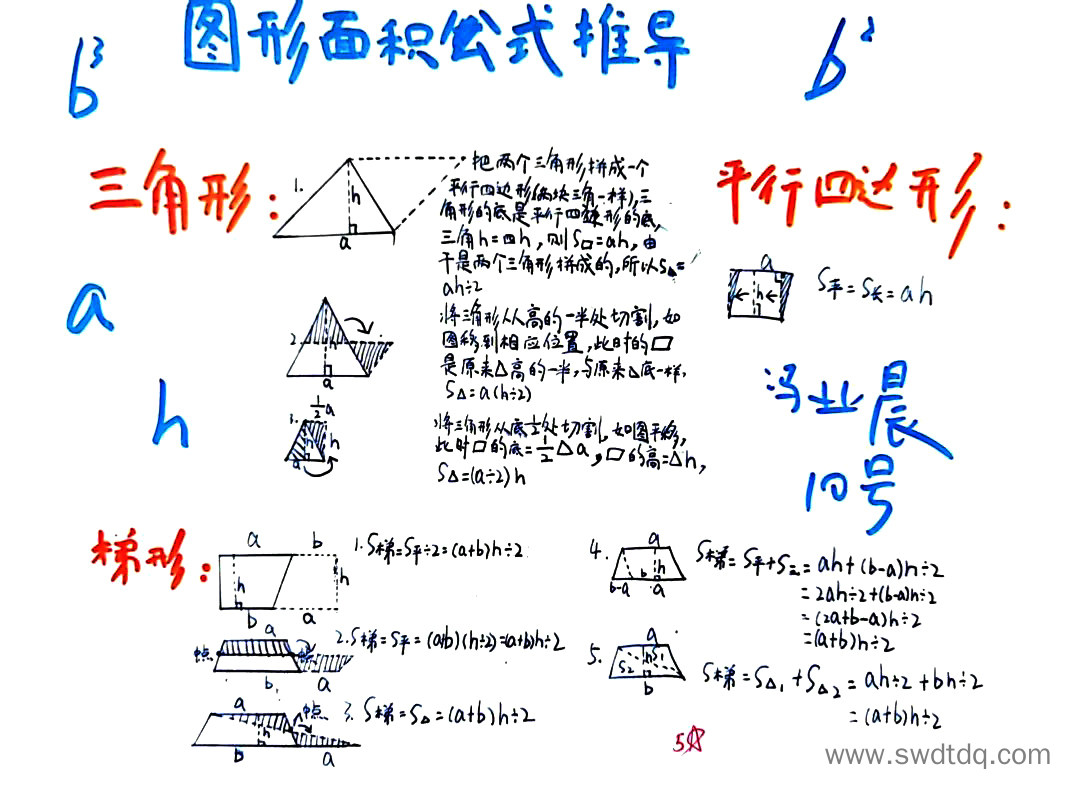 图形面积公式推导
b³
b²
三角形:
1.
h
a
把两个三角形,拼成一个
平行四边形(两块三角一样),三
角形的底是平行四边形的底,
三角h=四h,则S□=ah,由
于是两个三角形拼成的,所以S△=
ah÷2
平行四边形:
a
h
S平=S长=ah
a
h
2.
h
a
将三角形从高的一半处切割,如
图移到相应位置,此时的□
是原来△高的一半,与原来△底一样.
S△=a(h÷2)
3.
½a
h
h
a
将三角形从底½处切割,如图平移,
此时□的底=½△a,□的高=△h,
S△=(a÷2)h
冯业晨
10号
梯形:
a b
h h
b a
1.S梯=S平÷2=(a+b)h÷2
a
中点
b a
2.S梯=S平=(a+b)(h÷2)=(a+b)h÷2
a
中点
h
b a
3.S梯=S△=(a+b)h÷2
4.
a
b h
b-a a
S梯=S平+S三=ah+(b-a)h÷2
=2ah÷2+(b-a)h÷2
=(2a+b-a)h÷2
=(a+b)h÷2
5.
a
S2 h S1
b
S梯=S△1+S△2=ah÷2+bh÷2
=(a+b)h÷2
5☆
www.swdtdq.com